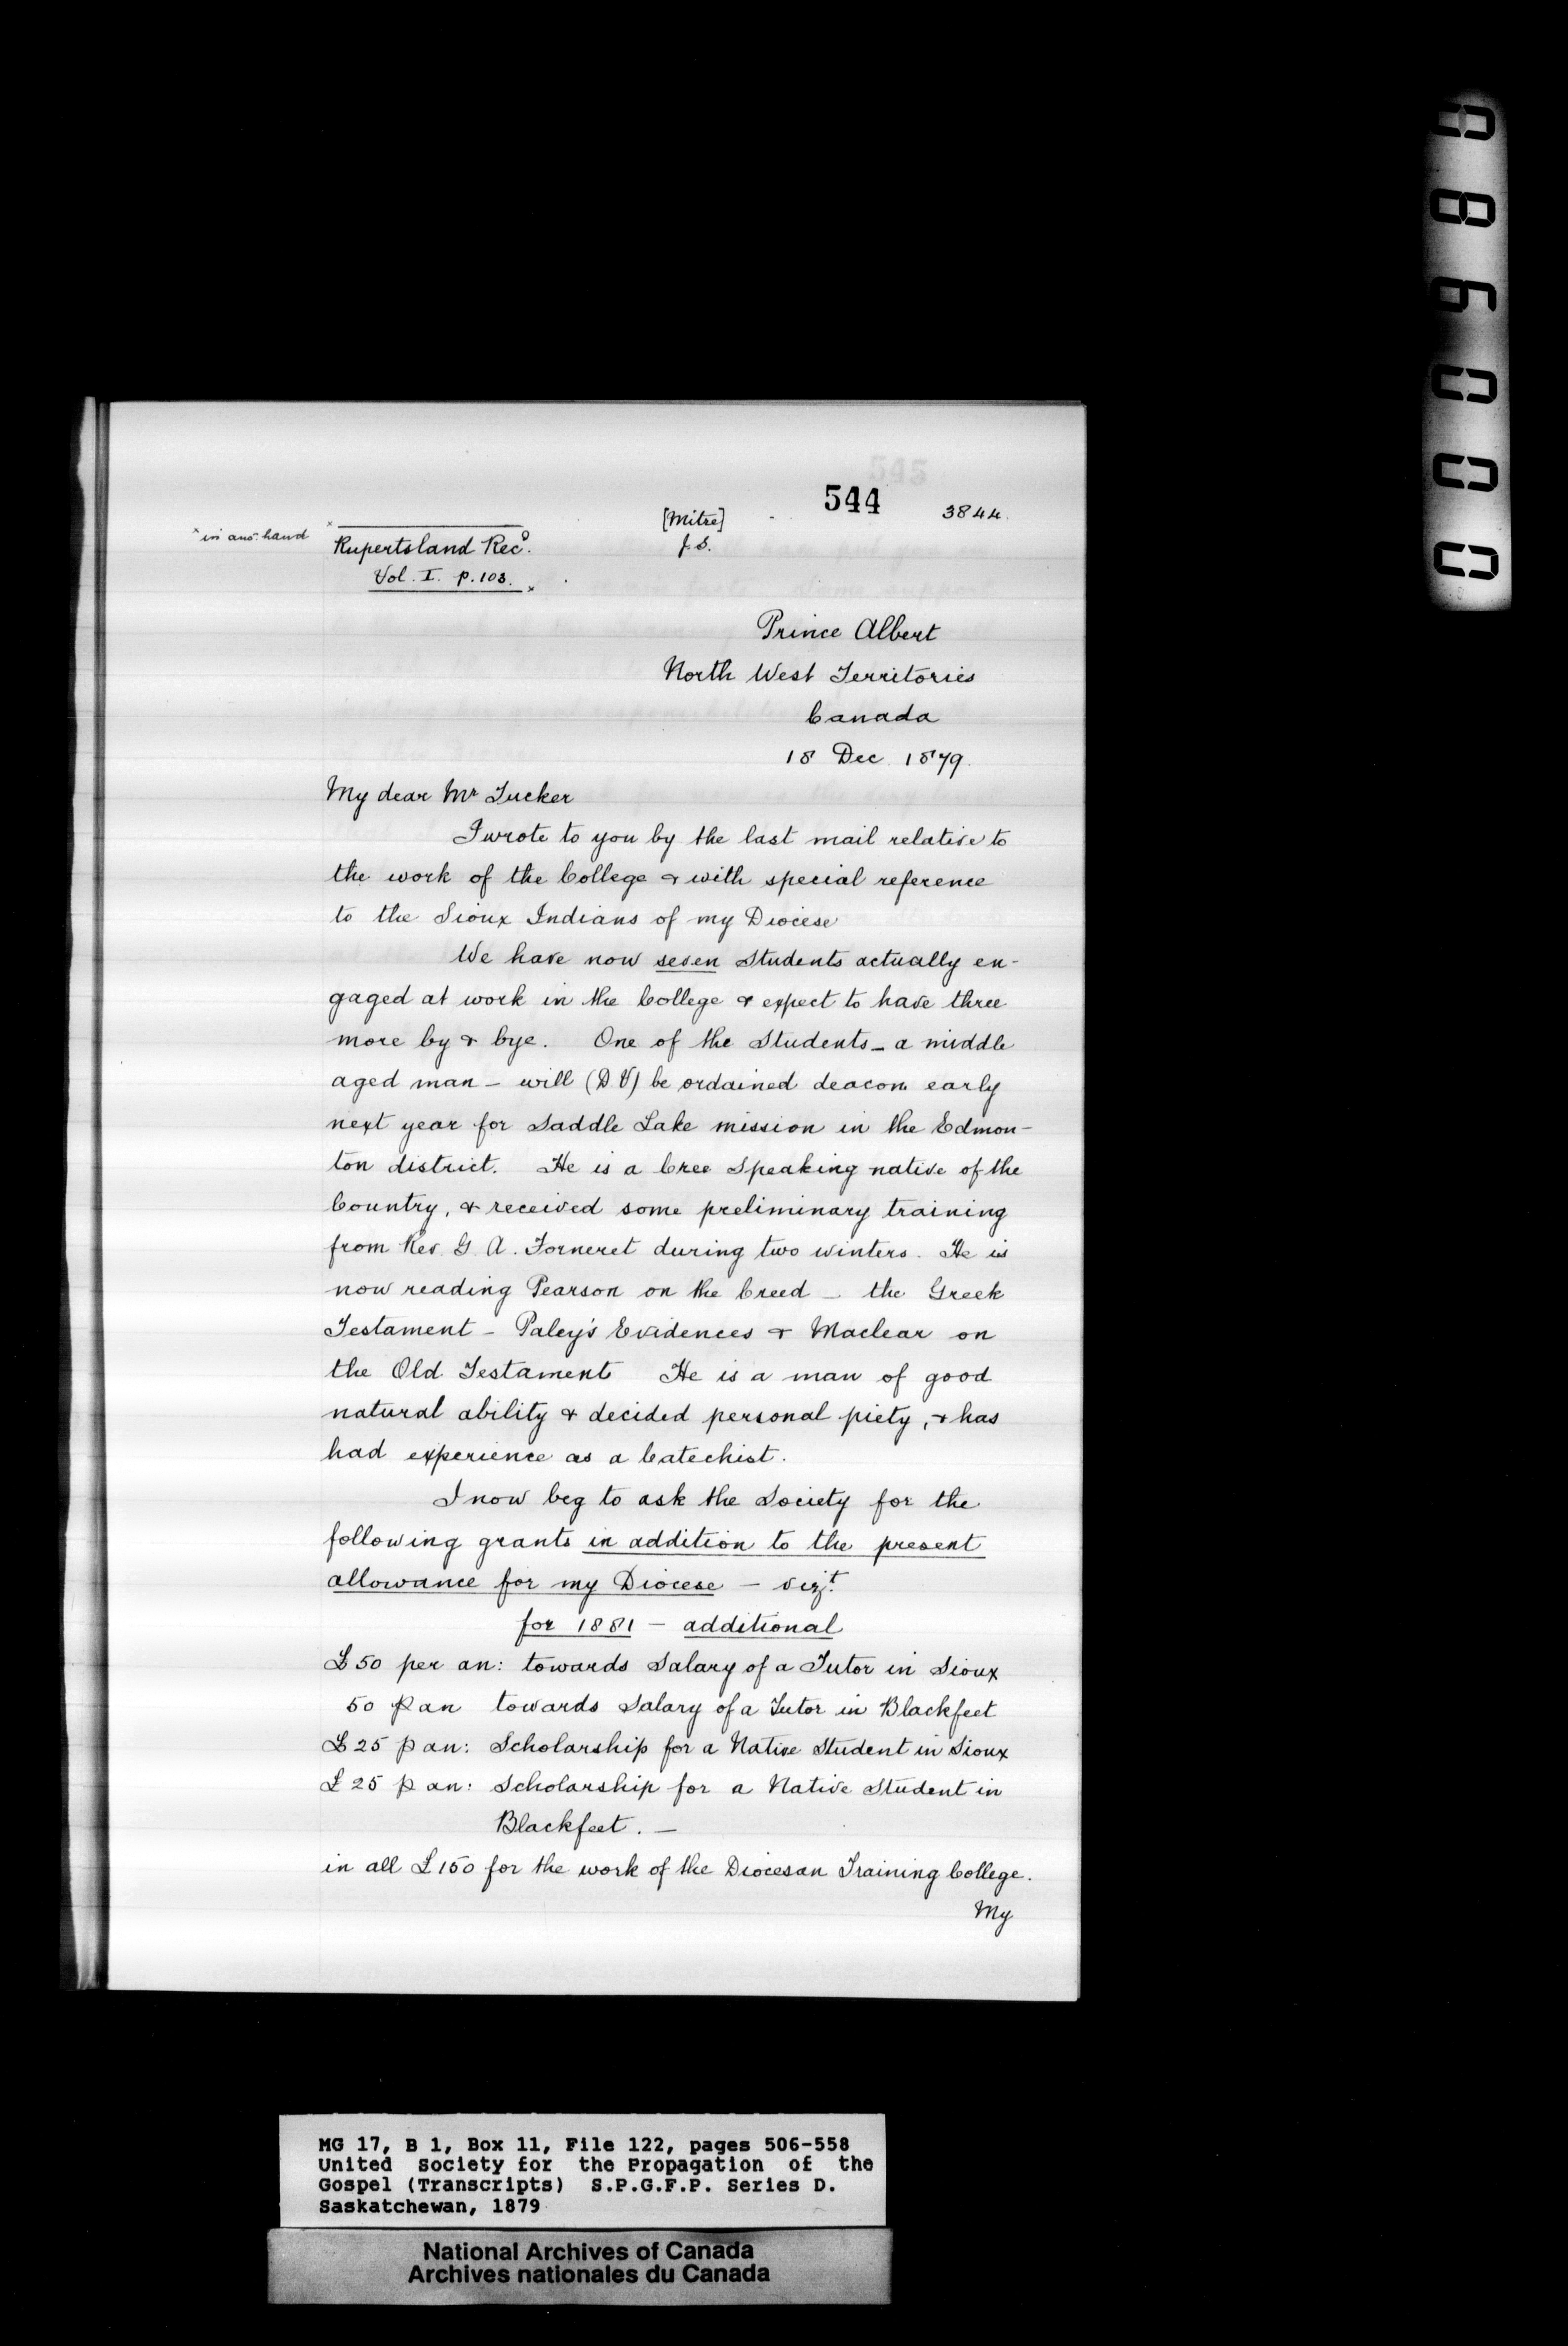 544
3844.
[Mitre]
J. S.
x in ano: hand
x Rupertsland Recd.
Vol. I. p. 103. x
Prince Albert
North West Territories
Canada
18 Dec. 1879.
My dear Mr Tucker
I wrote to you by the last mail relative to
the work of the College & with special reference
to the Sioux Indians of my Diocese
We have now seven Students actually en-
gaged at work in the College & expect to have three
more by & bye. One of the Students - a middle
aged man - will (D.V) be ordained deacon early
next year for Saddle Lake mission in the Edmon-
ton district. He is a Cree Speaking native of the
Country, & received some preliminary training
from Rev. G. A. Forneret during two winters. He is
now reading Pearson on the Creed - the Greek
Testament - Paley's Evidences & Maclear on
the Old Testament He is a man of good
natural ability & decided personal piety, & has
had experience as a Catechist.
I now beg to ask the Society for the
following grants in addition to the present
allowance for my Diocese - vizt.
for 1881 - additional
£50 per an: towards Salary of a Tutor in Sioux
50 p an towards Salary of a Tutor in Blackfeet
£25 p an: Scholarship for a Native Student in Sioux
£25 p an: Scholarship for a Native Student in
Blackfeet. -
in all £150 for the work of the Diocesan Training College.
My
MG 17, B 1, Box 11, File 122, pages 506-558
United Society for the Propagation of the
Gospel (Transcripts) S.P.G.F.P. Series D.
Saskatchewan, 1879
National Archives of Canada
Archives nationales du Canada